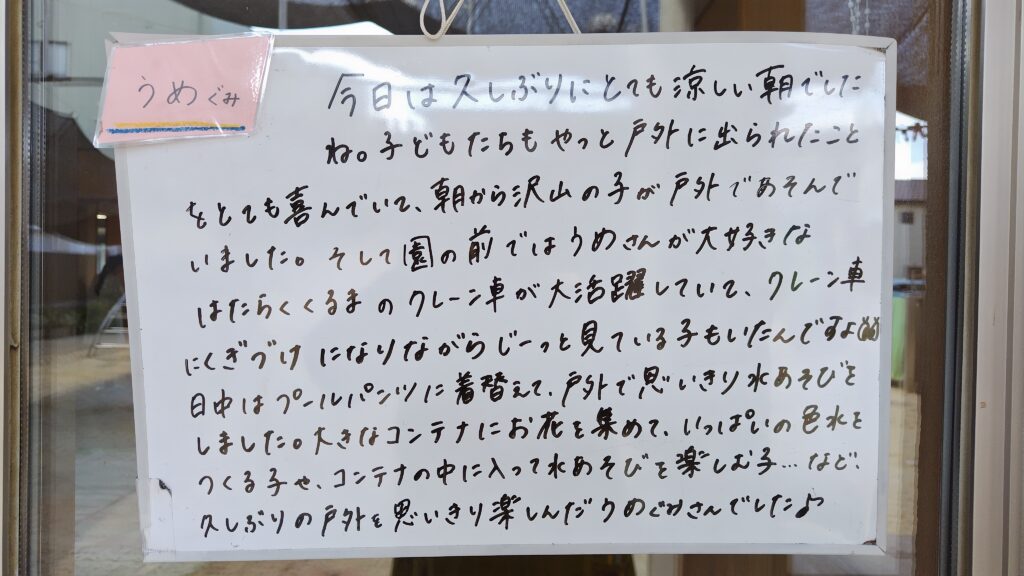 うめぐみ
今日は久しぶりにとても涼しい朝でした
ね。子どもたちもやっと戸外に出られたこと
をとても喜んでいて、朝から沢山の子が戸外であそんで
いました。そして園の前ではうめさんが大好きな
はたらくくるまのクレーン車が大活躍していて、クレーン車
にくぎづけになりながらじーっと見ている子もいたんですよ
日中はプールパンツに着替えて、戸外で思いきり水あそびを
しました。大きなコンテナにお花を集めて、いっぱいの色水を
つくる子や、コンテナの中に入って水あそびを楽しむ子…など、
久しぶりの戸外を思いきり楽しんだうめぐみさんでした♪